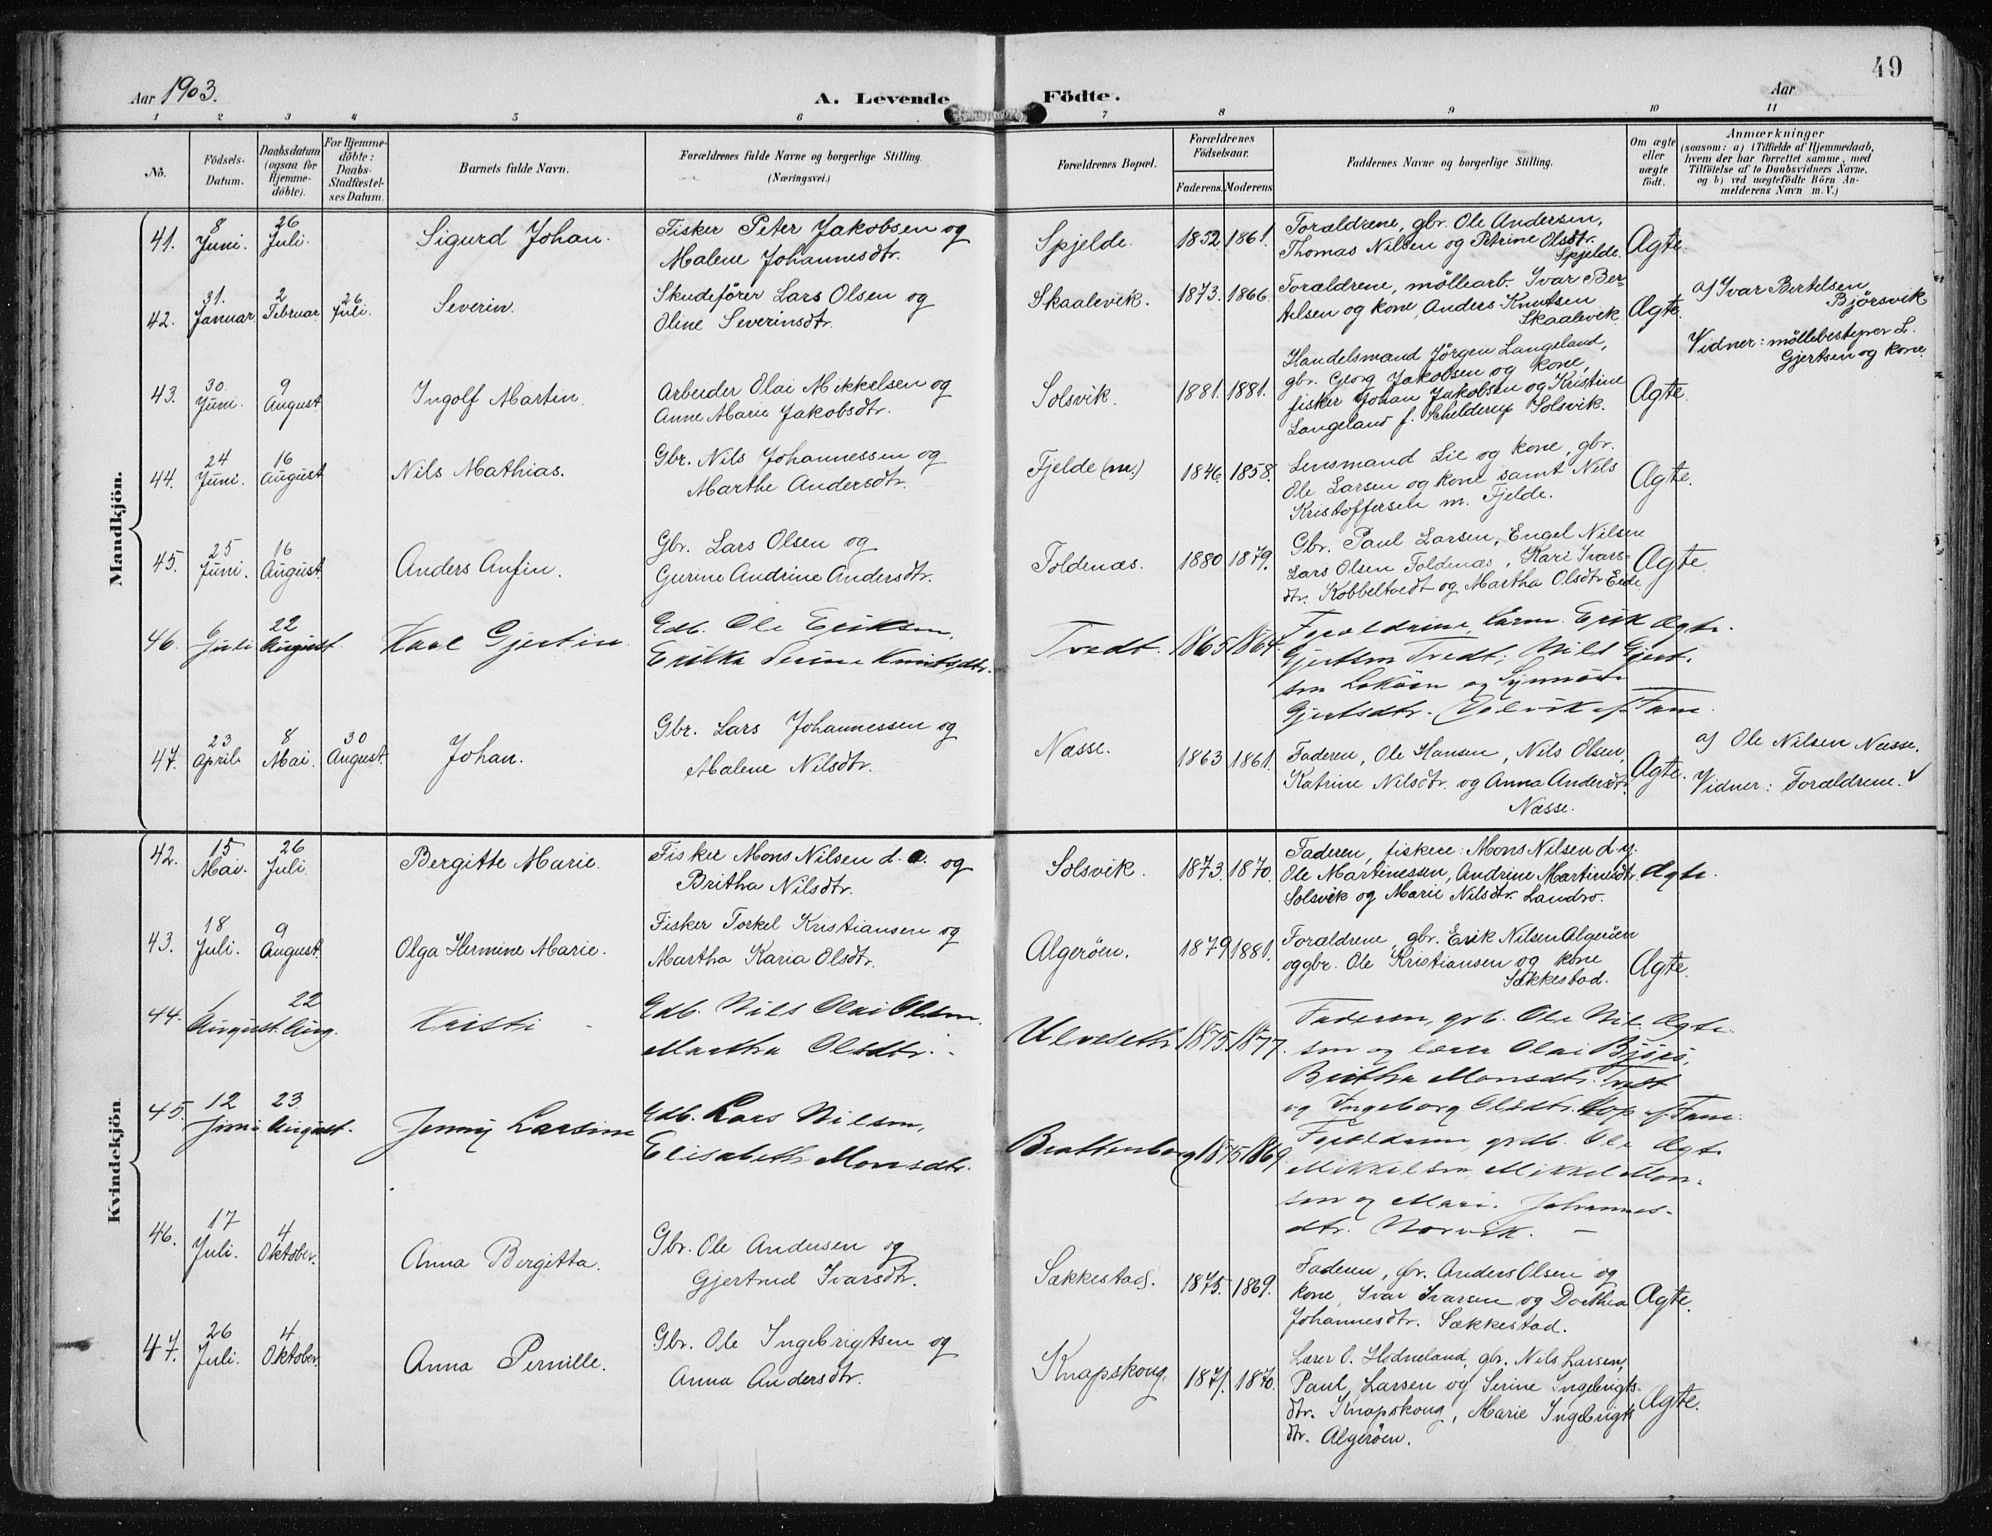 49
Aar 1903.
A. Levende Födte.
Aar
1 2 3 4 5 6 7 8 9 10 11
No.
Födsels-
Datum.
Daabsdatum
(ogsaa for
Hjemme-
döbte).
For Hjemme-
döbte:
Daabs-
Stadfæstel-
ses Datum.
Barnets fulde Navn.
Forældrenes fulde Navne og borgerlige Stilling.
(Næringsvei.)
Forældrenes Bopæl.
Forældrenes
Födselsaar.
Faderens. Moderens
Faddernes Navne og borgerlige Stilling.
Om ægte
eller
uægte
födt.
Anmærkninger
(saasom: a) i Tilfælde af Hjemmedaab,
hvem der har forrettet samme, med
Tilföielse af to Daabsvidners Navne,
og b) ved uægtefödte Börn An-
melderens Navn m. V.)
Mandkjön.
41. 8 Juni. 26 Juli. Sigurd Johan.
Fisker Peter Jakobsen og
Malene Johannesdtr.
Spjelde. 1852 1861.
Forældrene, gbr. Ole Andersen,
Thomas Nilsen og Petrine Olsdtr.
Spjelde.
Ægte.
42. 31. Januar. 2 Februar. 26 Juli. Severin.
Skudefører Lars Olsen og
Oline Severinsdtr.
Skaalevik. 1873. 1866.
Forældrene, møllearb. Ivar Ber-
telsen og kone, Anders Knutsen
Skaalevik.
Ægte.
a) Ivar Bertelsen
Bjørsvik
Vidner: møllebestyrer L.
Gjertsen og kone.
43. 30 Juni. 9 August. Ingolf Martin.
Arbeider Olai Mikkelsen og
Anne Marie Jakobsdtr.
Solsvik. 1881. 1881.
Handelsmand Jørgen Langeland,
gbr. Georg Jakobsen og kone,
fisker Johan Jakobsen og Kristine
Langeland f. Schelderup Solsvik.
Ægte.
44. 24 Juni. 16 August Nils Mathias.
Gbr. Nils Johannessen og
Marthe Andersdtr.
Fjelde (m.) 1846 1858.
Lensmand Lie og kone, gbr.
Ole Larsen og kone samt Nils
Kristoffersen m. Fjelde.
Ægte.
45. 25 Juni. 16 August. Anders Anfin.
Gbr. Lars Olsen og
Gurine Andrine Andersdtr.
Foldenæs. 1880 1879.
Gbr. Paul Larsen, Engel Nilsen
Lars Olsen Foldenæs, Kari Ivars-
dtr. Kobbeltvedt og Martha Olsdtr Eide
Ægte.
46. 6 Juli 22 August. Karl Gjertin
Gdb. Ole Eriksen,
Erikka Serine Knutsdtr.
Tvedt. 1865 1864.
Forældrene, Erik
Gjertsen Tvedt, Nils Gjert-
sen og Synnøve
Gjertsdtr.
Ægte.
47. 23 April. 8 Mai. 30 August. Johan.
Gbr. Lars Johannessen og
Malene Nilsdtr.
Næsse. 1863 1861.
Faderen, Ole Hansen, Nils Olsen,
Katrine Nilsdtr. og Anna Andersdtr.
Næsse.
Ægte.
a) Ole Nilsen Næsse.
Vidner: Forældrene.
Kvindekjön
42. 15 Mai. 26 Juli. Bergitte Marie.
Fisker Mons Nilsen d. a. og
Britha Nilsdtr.
Solsvik. 1873. 1870.
Faderen, fiskere: Mons Nilsen d.y.
Ole Martinessen, Andrine Martinusdtr.
Solsvik og Marie Nilsdtr. Landro.
Ægte.
43. 18 Juli. 9 August. Olga Hermine Marie.
Fisker Torkel Kristiansen og
Martha Karia Olsdtr.
Algerøen. 1879 1881.
Forældrene, gbr. Erik Nilsen Algerøen
og gbr. Ole Kristiansen og kone
Sækkestad.
Ægte.
44. 1 August. 22 Aug. Kristi
Gdb. Nils Olai Olsen,
Martha Olsdtr.
Ulveseth 1875. 1877.
Faderen, grb. Ole Nil-
sen og lærer Olai
Britha Monsdtr. Tvedt
og Ingeborg Olsdtr. Hop af Fane.
Ægte.
45. 12 Juni 23 August. Jenny Larsine
Gdb. Lars Nilsen,
Elisabeth Monsdtr.
Brattenborg 1875 1869
Forældrene, grdb. Ole
Mikkelsen, Mikkel Mon-
sen og Mari Johannes-
dtr. Norvik.
Ægte.
46. 17 Juli. 4 Oktober. Anna Bergitta.
Gbr. Ole Andersen og
Gjertrud Ivarsdtr.
Sækkestad. 1875. 1869.
Faderen, gbr. Anders Olsen og
kone, Ivar Ivarsen og Dorthea
Johannesdtr. Sækkestad.
Ægte.
47. 26 Juli. 4 Oktober. Anna Pernille.
Gbr. Ole Ingebrigtsen og
Anna Andersdtr.
Knapskoug. 1871. 1870.
Lærer O. Hodneland, gbr. Nils Larsen,
Paul Larsen og Serine Ingebrigts-
dtr. Knapskoug, Marie Ingebrigts-
dtr. Algerøen.
Ægte.